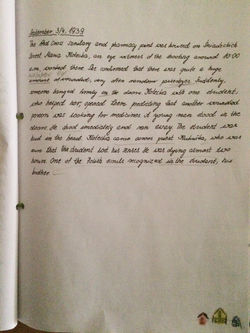 September 3/4. 1939
The Red Cross sanitary and pharmacy point was housed on
Street. Maria Kotecka, an eye witness of the shooting around 10:00
a.m. worked there. She confirmed that there was quite a huge
amount of wounded, very often random passengers. Suddenly
someone banged loudly on the doors. Kotecka with one student,
who helped her, opened them predicting that another wounded
person was looking for medicines. A young man stood in the
doors. He shot immediately and ran away. The student was
hit in the head. Kotecka came across priest who was
sure that the student lost his senses. He was dying almost two
hours. One of the scouts recognized in the student, his
brother.